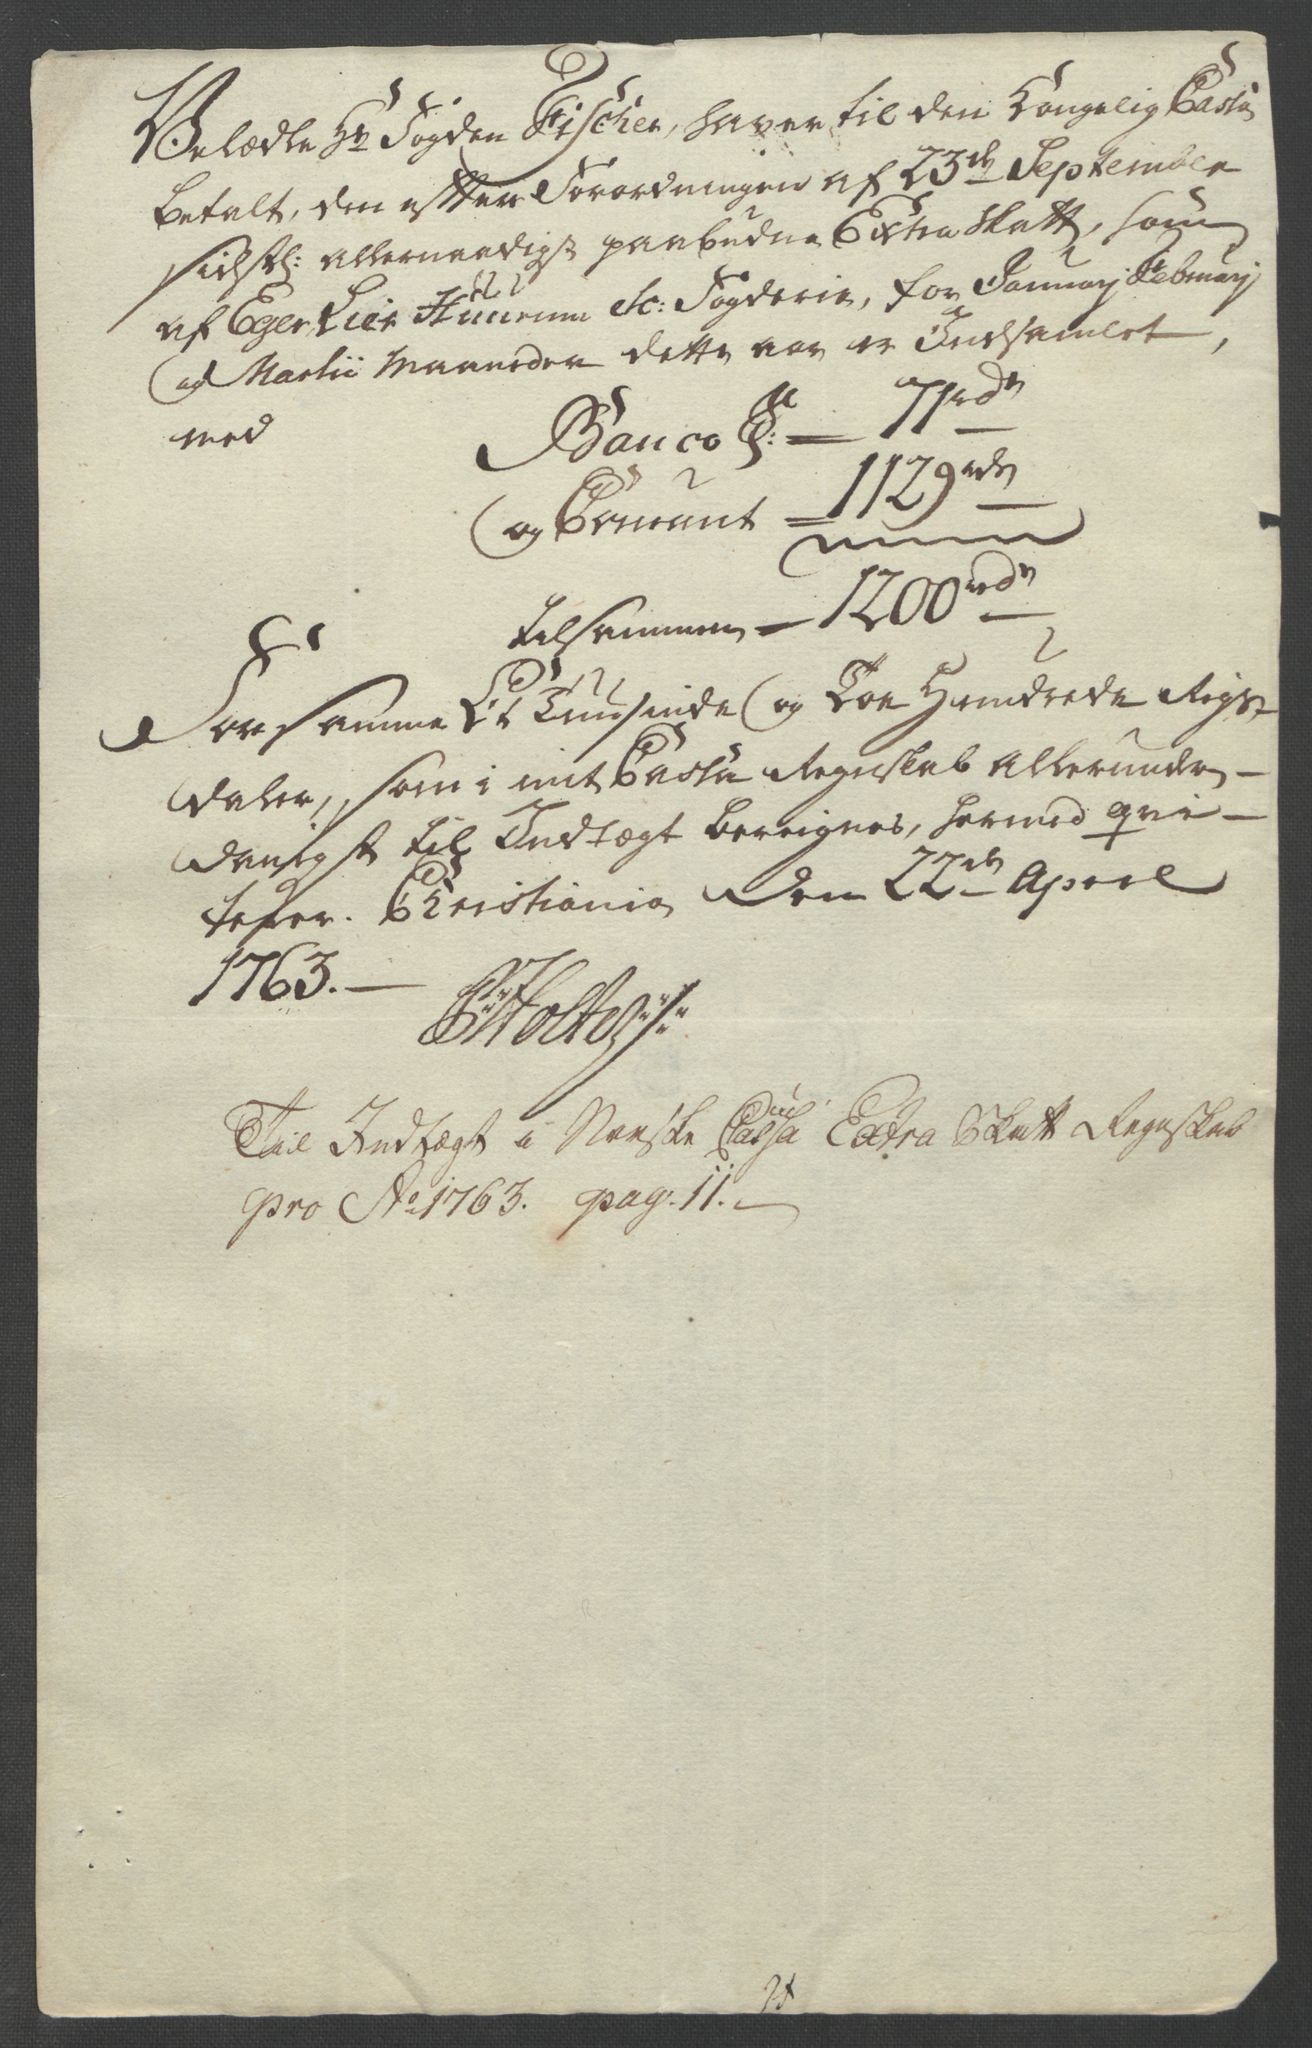 Velædle Hr Fogden Fischer, haver til den Kongelig Cassa
betalt, den efter Forordningen af 23de September
sidstl: allernaadigst paabudne Extra Skatt, som
af Eger Lier Huurum &c: Fogderie, for Januarj Februarj
og Martii Maaneder dette aar er Indsamlet,
med Banco S: = 71rdr
og Courant = 1129rdr
tilsammen = 1200rdr
For samme Et Tuusinde og Toe Hundrede Rigs-
daler, som i mit Cassa Regnskab allerunder-
danigst til Indtægt bereignes, hermed qvi-
terer. Christiania den 22de April
1763.
Holte
Til Indtægt i Norske Cassa Extra Skatt Regnskab
pro Ao 1763. pag: 11.